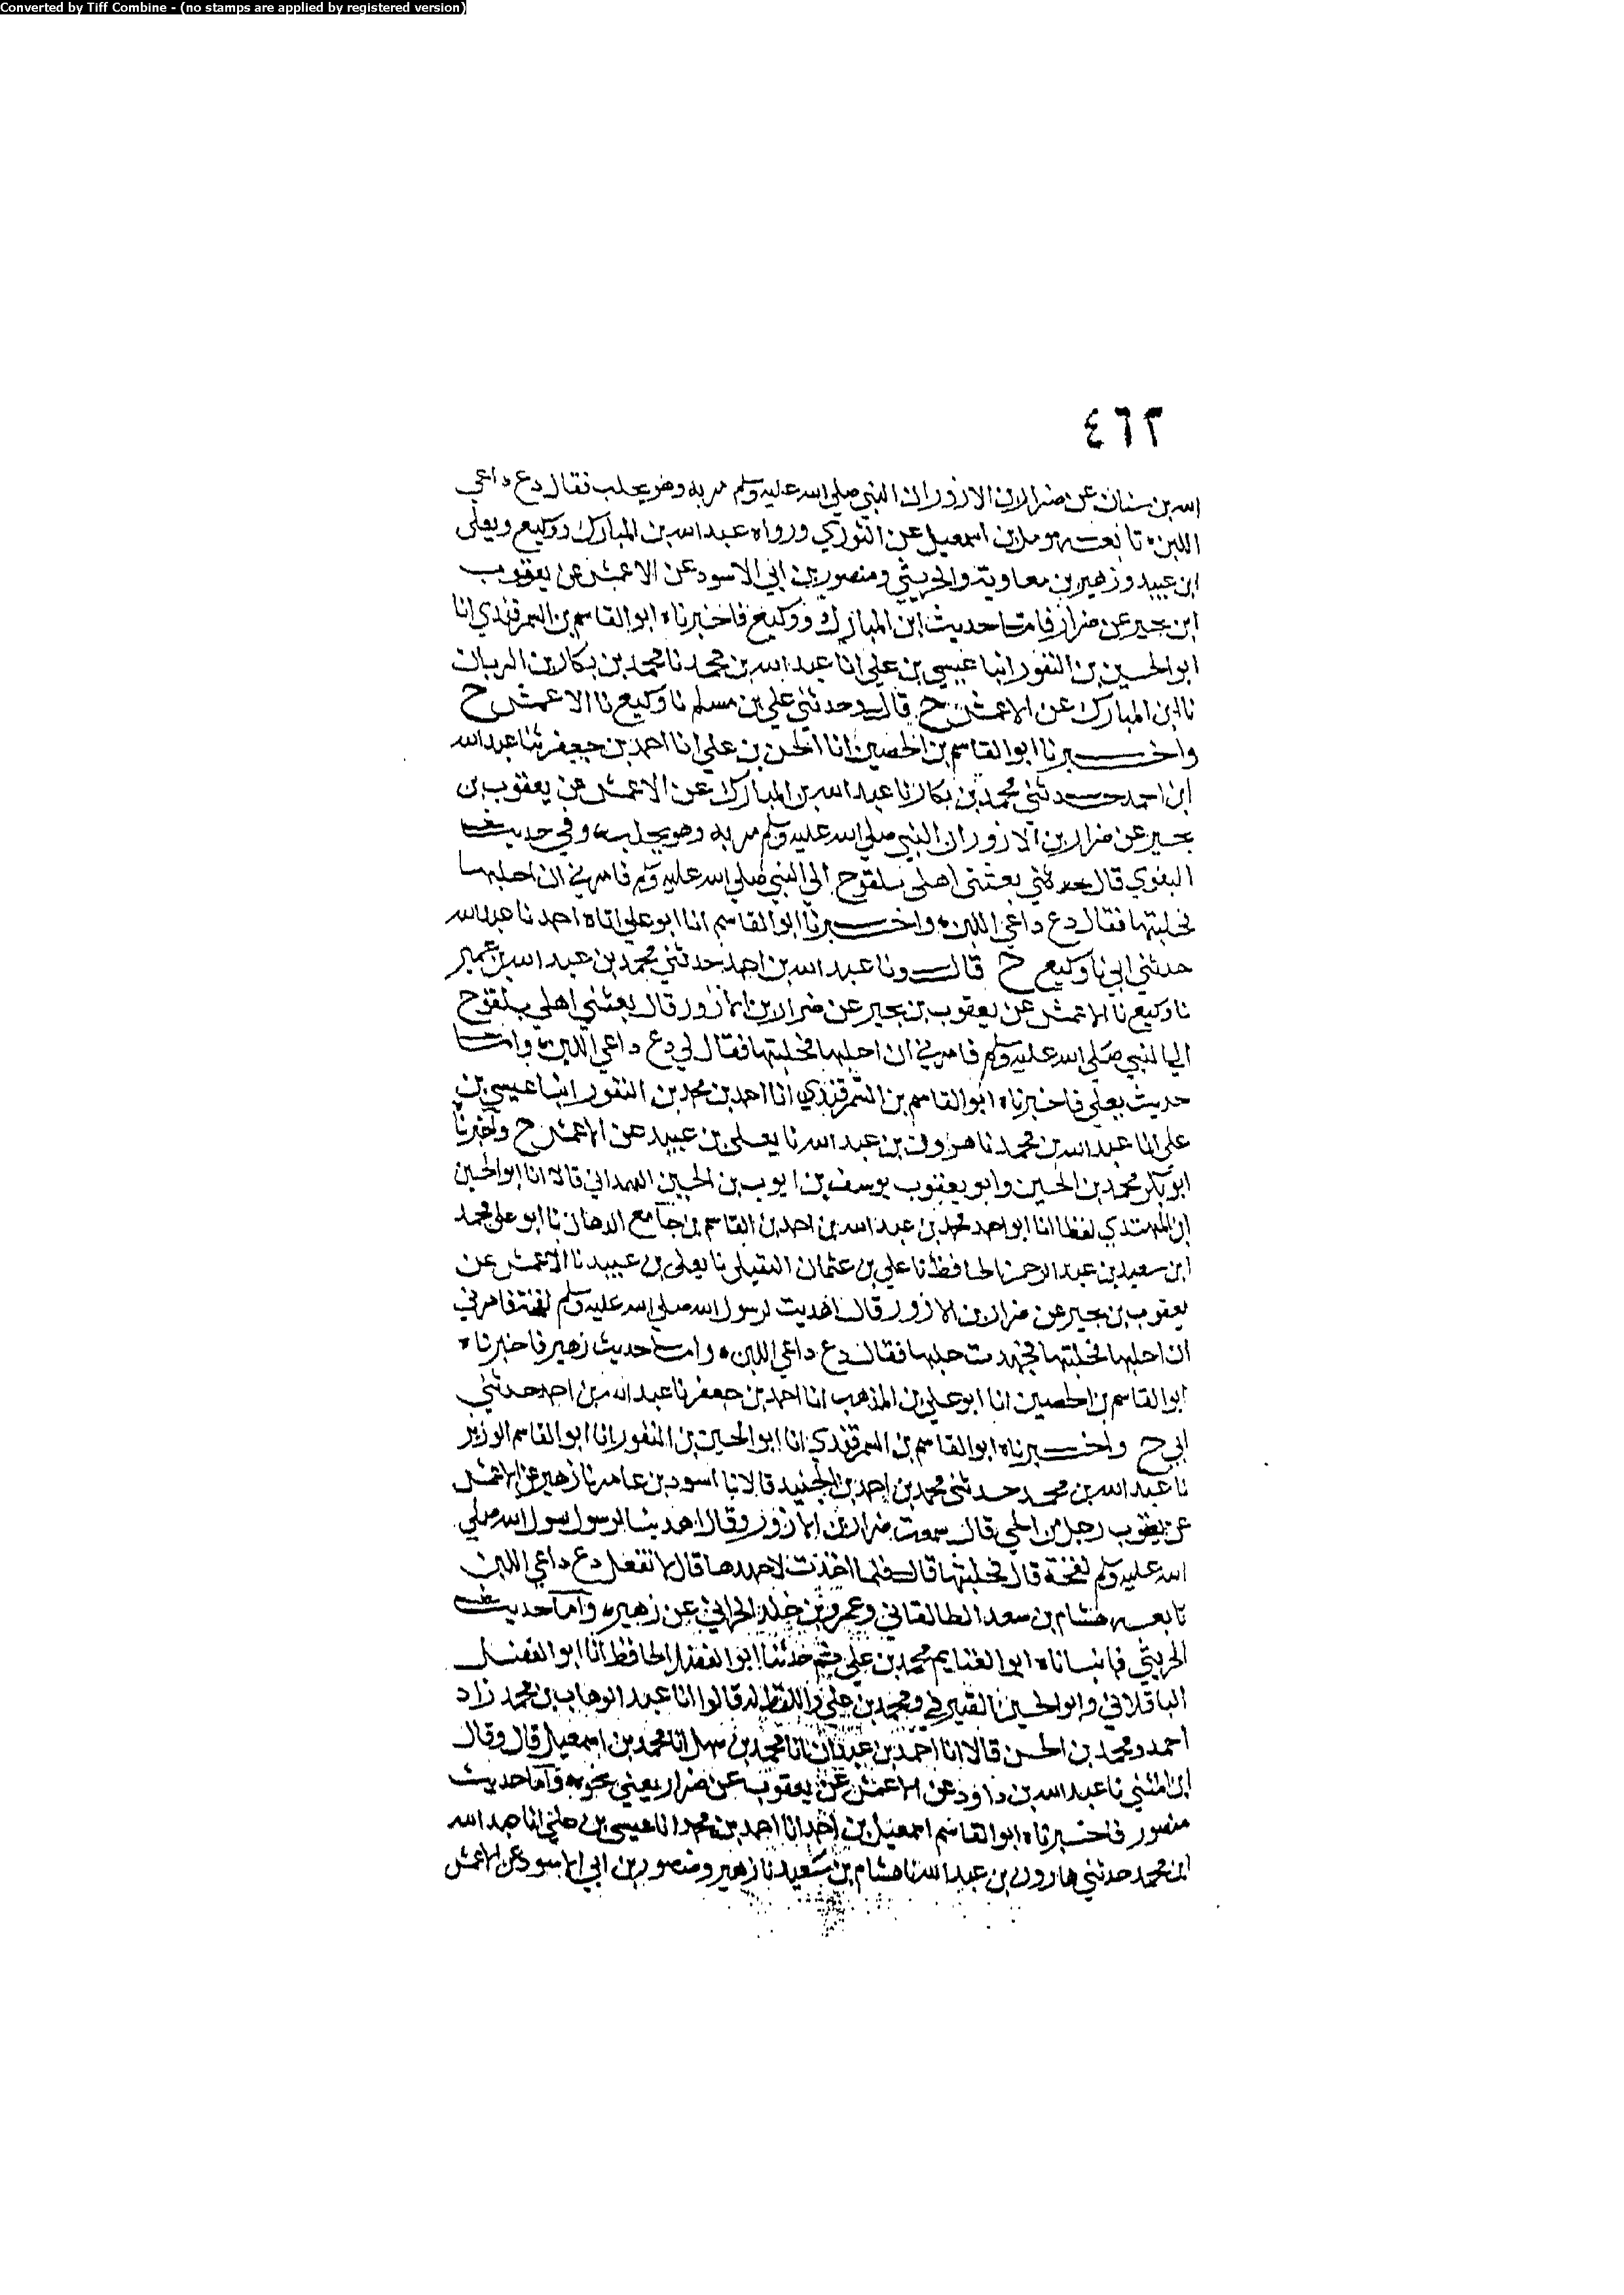 Converted by Tiff Combine - (no stamps are applied by registered version)
٤٦٣
الله بن سنان عن ضرار بن الازور ان النبي صلى الله عليه وسلم مر به وهو يحلب فقال دع داعي
اللبن تابعه مومل بن اسمعيل عن الثوري ورواه عبد الله بن المبارك ووكيع ويعلى
ابن عبيد وزهير بن معاوية والخريبي ومنصور بن ابي الاسود عن الاعمش عن يعقوب
ابن بحير عن ضرار فاما حديث ابن المبارك ووكيع فاخبرناه ابو القاسم بن السمرقندي انا
ابو الحسين بن النقور انبا عيسى بن علي انا عبد الله بن محمد نا محمد بن بكار بن الريان
نا ابن المبارك عن الاعمش ح قال وحدثني علي بن مسلم نا وكيع نا الاعمش ح
واخبرنا ابو القاسم بن الحصين انا الحسن بن علي انا احمد بن جعفر ثنا عبد الله
ابن احمد حدثني محمد بن بكار نا عبد الله بن المبارك عن الاعمش عن يعقوب بن
بحير عن ضرار بن الازور ان النبي صلى الله عليه وسلم مر به وهو يحلب وفي حديث
البغوي قال بعثني اهلي بلقوح الي النبي صلى الله عليه وسلم فامرني ان احلبها
فحلبتها فقال دع داعي اللبن واخبرنا ابو القاسم انا ابو علي انا احمد نا عبد الله
حدثني ابي نا وكيع ح قال ونا عبد الله بن احمد حدثني محمد بن عبد الله بن نمير
نا وكيع نا الاعمش عن يعقوب بن بحير عن ضرار بن الازور قال بعثني اهلي بلقوح
الي النبي صلى الله عليه وسلم فامرني ان احلبها فحلبتها فقال لي دع داعي اللبن واما
حديث يعلى فاخبرناه ابو القاسم بن السمرقندي انا احمد بن محمد بن النقور انبا عيسى بن
علي انا عبد الله بن محمد نا هرون بن عبد الله نا يعلى بن عبيد عن الاعمش ح واخبرنا
ابو بكر محمد بن الحسين وابو يعقوب يوسف بن ايوب بن الحسين الهمداني قالا انا ابو الحسين
ابن المهتدي لفظا انا ابو احمد محمد بن عبد الله بن احمد بن القاسم بن جامع الدهان نا ابو علي محمد
ابن سعيد بن عبد الرحمن الحافظ نا علي بن عثمان النفيلي نا يعلى بن عبيد نا الاعمش عن
يعقوب بن بحير عن ضرار بن الازور قال اهديت لرسول الله صلى الله عليه وسلم لقحة فامرني
ان احلبها فحلبتها فجهدت حلبها فقال دع داعي اللبن واما حديث زهير فاخبرناه
ابو القاسم بن الحصين انا ابو علي بن المذهب انا احمد بن جعفر نا عبد الله بن احمد حدثني
ابي ح واخبرناه ابو القاسم بن السمرقندي انا ابو الحسين بن النقور انا ابو القاسم الوزير
نا عبد الله بن محمد حدثني محمد بن احمد بن الجنيد قالا نا اسود بن عامر نا زهير عن الاعمش
عن يعقوب رجل من الحي قال سمعت ضرار بن الازور وقال اهدينا لرسول الله صلى
الله عليه وسلم لقحة قال فحلبتها قال فلما اخذت لاجهدها قال لا تفعل دع داعي اللبن
تابعه هشام بن سعد الطالقاني وعمرو بن خلد الحراني عن زهير واما حديث
الخريبي فانباناه ابو الغنايم محمد بن علي ثم حدثنا ابو الفضل الحافظ انا ابو الفضل
الباقلاني وابو الحسين الصيرفي ومحمد بن علي واللفظ له قالوا انا عبد الوهاب بن محمد زاد
احمد ومحمد بن الحسن قالا انا احمد بن عبدان انا محمد بن سهل انا محمد بن اسمعيل قال وقال
ابن المثنى نا عبد الله بن داود عن الاعمش عن يعقوب عن ضرار يعني نحوه واما حديث
منصور فاخبرناه ابو القاسم اسمعيل بن احمد انا احمد بن محمد انا عيسى بن علي انا عبد الله
ابن محمد حدثني هارون بن عبد الله نا هشام بن سعيد نا زهير ومنصور بن ابي الاسود عن الاعمش